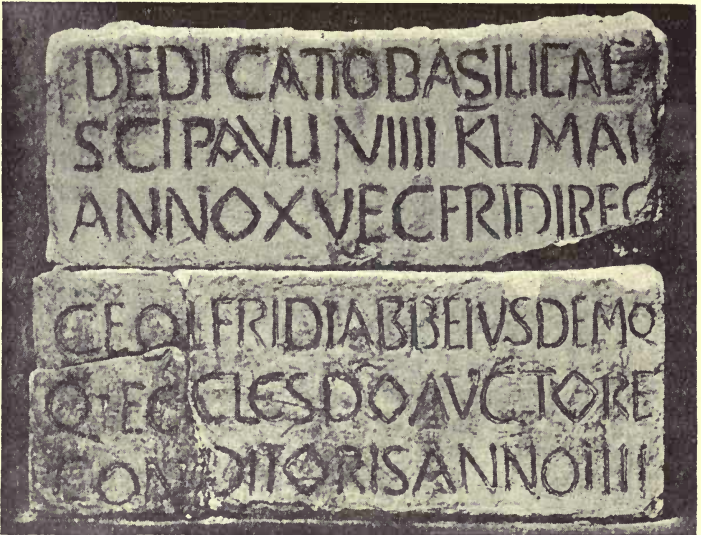 DEDICATIO BASILICAE
SCI PAVLI VIIII KL MAI
ANNO XV ECFRIDI REG
CEOLFRIDI ABB EIVSDEM Q
Q· ECCLES DO AVCTORE
CONDITORIS ANNO IIII